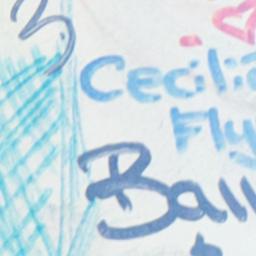 3
Cecilia
Fly
Ball